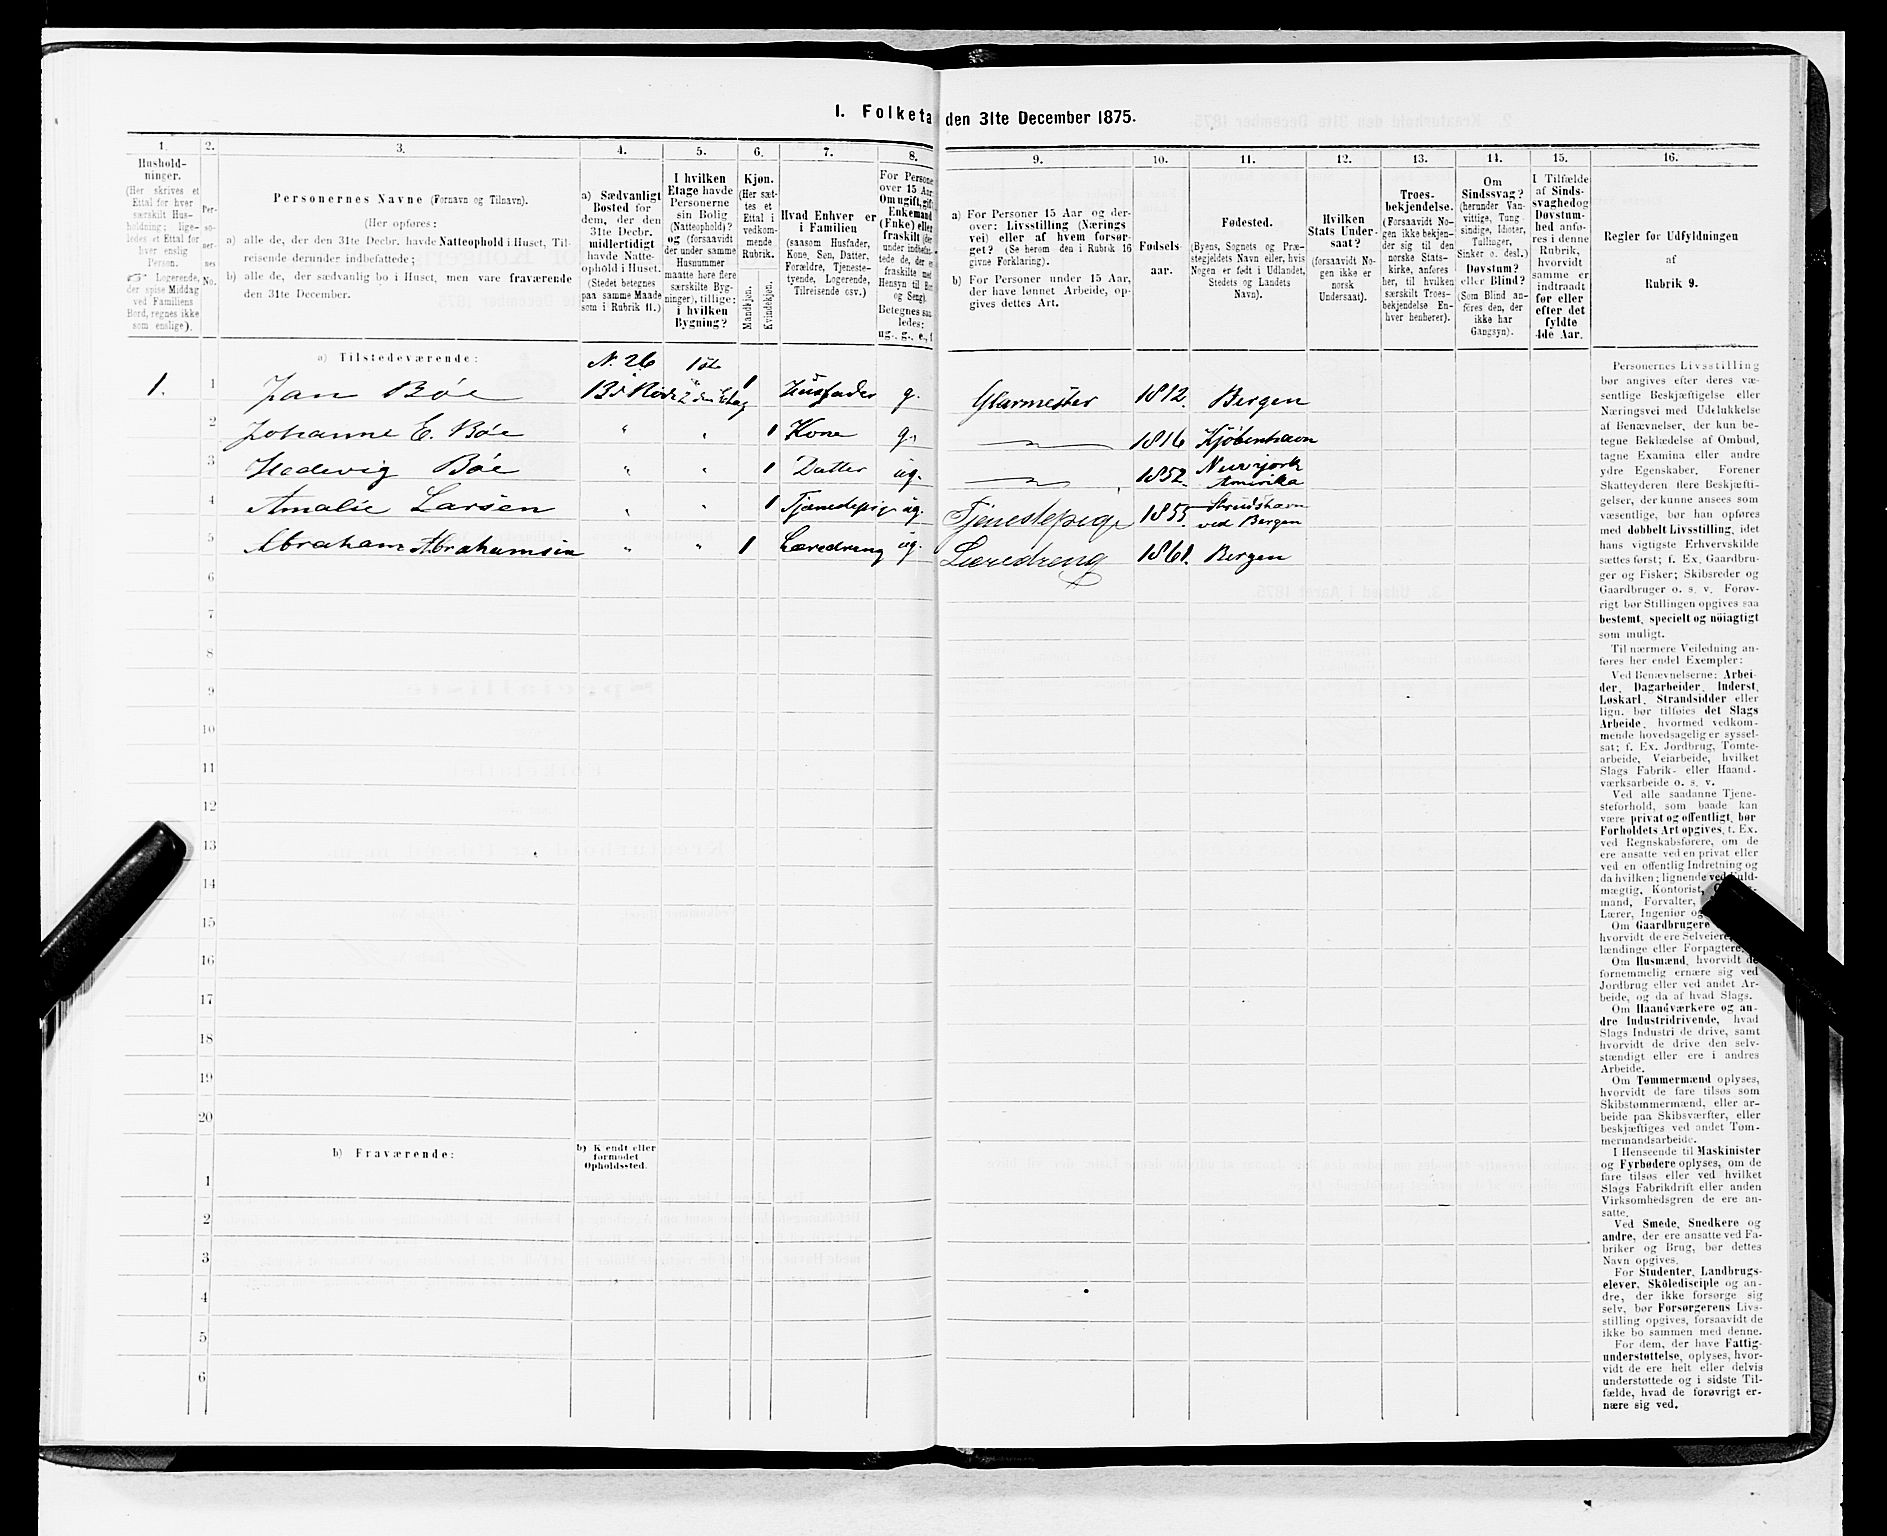 I. Folketa den 31te December 1875.
1. 2. 3. 4. 5. 6. 7. 8. 9. 10. 11. 12. 13. 14. 15. 16.
Hushold-
ninger.
(Her skrives et
Ettal for hver
særskilt Hus-
holdning; lige-
ledes et Ettal for
hver enslig
Person.
Logerende,
der spise Middag
ved Familiens
Bord, regnes ikke
som enslige).
Per-
so-
ner-
nes
No.
Personernes Navne (Fornavn og Tilnavn).
(Her opføres:
a) alle de, der den 31te Decbr. havde Natteophold i Huset, Til-
reisende derunder indbefattede;
b) alle de, der sædvanlig bo i Huset, men vare fraværende
den 31te December.
a) Sædvanligt
Bosted for
dem, der den
31te Decbr.
midlertidigt
havde Natte-
ophold i Huset.
(Stedet betegnes
paa samme Maade
som i Rubrik 11.)
I hvilken
Etage havde
Personerne
sin Bolig
(Natteophold)?
og (forsaavidt
der under samme
Husnummer
maatte høre flere
særskilte Byg-
ninger), tillige:
i hvilken
Bygning?
Kjøn.
(Her sæt-
tes et
Ettal i
vedkom-
mende
Rubrik.
Mandkjøn.
Kvindekjøn.
Hvad Enhver er
i Familien
(saasom Husfader,
Kone, Søn, Datter,
Forældre, Tjeneste-
tyende, Logerende,
Tilreisende osv.)
For Persone
over 15 Aar
Om ugift, gift
Enkemand
(Enke) elle
fraskilt (der
under indbefat-
tede de, der e
fraskilte med
Hensyn til Bor
og Seng).
Betegnes saa
ledes:
ug., g., e., f.
a) For Personer 15 Aar og der-
over: Livsstilling (Nærings
vei) eller af hvem forsør-
get? (Se herom den i Rubrik 16
givne Forklaring).
b) For Personer under 15 Aar,
der have lønnet Arbeide, op-
gives dettes Art.
Fødsels-
aar.
Fødested.
(Byens, Sognets og Præ-
stegjeldets Navn eller, hvis
Nogen er født i Udlandet,
Stedets og Landets
Navn).
Hvilken
Stats Under-
saat?
(forsaavidt No-
gen ikke er
norsk
Undersaat).
Troes-
bekjendelse.
(Forsaavidt No-
gen ikke bekjen-
der sig til den
norske Stats-
kirke, anføres
her, til hvilken
særskilt Troes-
bekjendelse En-
hver henhører).
Om
Sindssvag?
(herunder Van-
vittige, Tung-
sindige, Idioter,
Tullinger,
Sinker o. desl.)
Døvstum?
eller Blind?
(Som Blind an-
føres den, der
ikke har
Gangsyn).
I Tilfælde
af Sinds-
svaghed og
Døvstum-
hed anfø-
res i denne
Rubrik,
hvorvidt
samme er
indtraadt
før eller
efter det
fyldte
4de Aar.
Regler for Udfyldningen
af
Rubrik 9.
a) Tilstedeværende:
N. 26 1ste
1. 1 Jan Bøe 13 Rode 2den Etag 1 Husfader g. Glarmester 1812. Bergen
2 Johanne E. Bøe " " 1 Kone g. 1816 Kjøbenhavn
3 Hedevig Bøe " " 1 Datter ug. 1852. Newjork Amerika
4 Amalie Larsen " " 1 Tjenestepige ug. Tjenestepige 1855 ved Bergen
5 Abraham Abrahamsen " " 1 Læredreng ug. Læredreng 1861. Bergen
6
7
8
9
10
11
12
13
14
15
16
17
18
19
20
b) Fraværende:
b) Kjendt eller
formodet
Opholdssted.
1
2
3
4
5
6
Personernes Livsstilling
bør angives efter deres væ-
sentlige Beskjæftigelse eller
Næringsvei med Udelukkelse
af Benævnelser, der kun be-
tegne Beklædelse af Ombud,
tagne Examina eller andre
ydre Egenskaber. Forener
Skatteyderen flere Beskjæfti-
gelser, der kunne ansees som
væsentlige, bør han opføres
med dobbelt Livsstilling, idet
hans vigtigste Erhvervskilde
sættes først; f. Ex. Gaardbru-
ger og Fisker; Skibsreder og
Gaardbruger o. s. v. Forøv-
rigt bør Stillingen opgives saa
bestemt, specielt og nöiagtigt
som muligt.
Til nærmere Veiledning an-
føres her endel Exempler:
Ved Benævnelserne: Arbei-
der, Dagarbeider, Inderst,
Løskarl, Strandsidder eller
lign. bør tilføies det Slags
Arbeide, hvormed vedkom-
mende hovedsagelig er syssel-
sat; f. Ex. Jordbrug, Tomte-
arbeide, Veiarbeide, hvilket
Slags Fabrik- eller Haand-
værksarbeide o. s. v.
Ved alle saadanne Tjene-
steforhold, som baade kan
være privat og offentligt, bør
Forholdets Art opgives, f. Ex.
ved Regnskabsførere, om de
ere ansatte ved en privat eller
ved en offentlig Indretning og
da hvilken; lignende ved Fuld-
mægtig, Kontorist,
mand, Forvalter,
Lærer, Ingeniør og
Om Gaardbrugere
hvorvidt de ere Selveiere,
lændinge eller Forpagtere.
Om Husmænd, hvorvidt de
fornemmelig ernære sig ved
Jordbrug eller ved andet Ar-
beide, og da af hvad Slags.
Om Haandværkere og an-
dre Industridrivende, hvad
Slags Industri de drive, samt
hvorvidt de drive den selv-
stændigt eller ere i andres
Arbeide.
Om Tømmermænd oplyses,
hvorvidt de fare tilsøs som
Skibstømmermænd, eller ar-
beide paa Skibsværfter, eller
beskjæftiges ved andet Tøm-
mermandsarbeide.
I Henseende til Maskinister
og Fyrbødere oplyses, om de
fare tilsøs eller ved hvilket
Slags Fabrikdrift eller anden
Virksomhedsgren de ere an-
satte.
Ved Smede, Snedkere og
andre, der ere ansatte ved Fa-
briker og Brug, bør dettes
Navn opgives.
For Studenter, Landbrugs-
elever, Skoledisciple og an-
dre, der ikke forsørge sig
selv, bør Forsørgerens Livs-
stilling opgives, forsaavidt de
ikke bo sammen med denne.
For dem, der have Fattig-
understøttelse, oplyses, hvor-
vidt de ere helt eller delvis
understøttede og i sidste Til-
fælde, hvad de forøvrigt er-
nære sig ved.